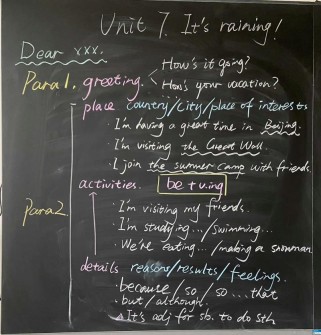 Unit 7. It's raining!
Dear xxx.
How's it going?
Para1. greeting.
How's your vacation?
place country/city/place of interests
· I'm having a great time in Beijing.
· I'm visiting the Great Wall.
· I join the summer camp with friends.
activities. be + v.ing
Para2.
· I'm visiting my friends.
· I'm studying.../swimming...
· We're eating.../making a snowman.
details reasons/results/feelings.
· because/so/so...that
· but/although.
△It's adj for sb. to do sth